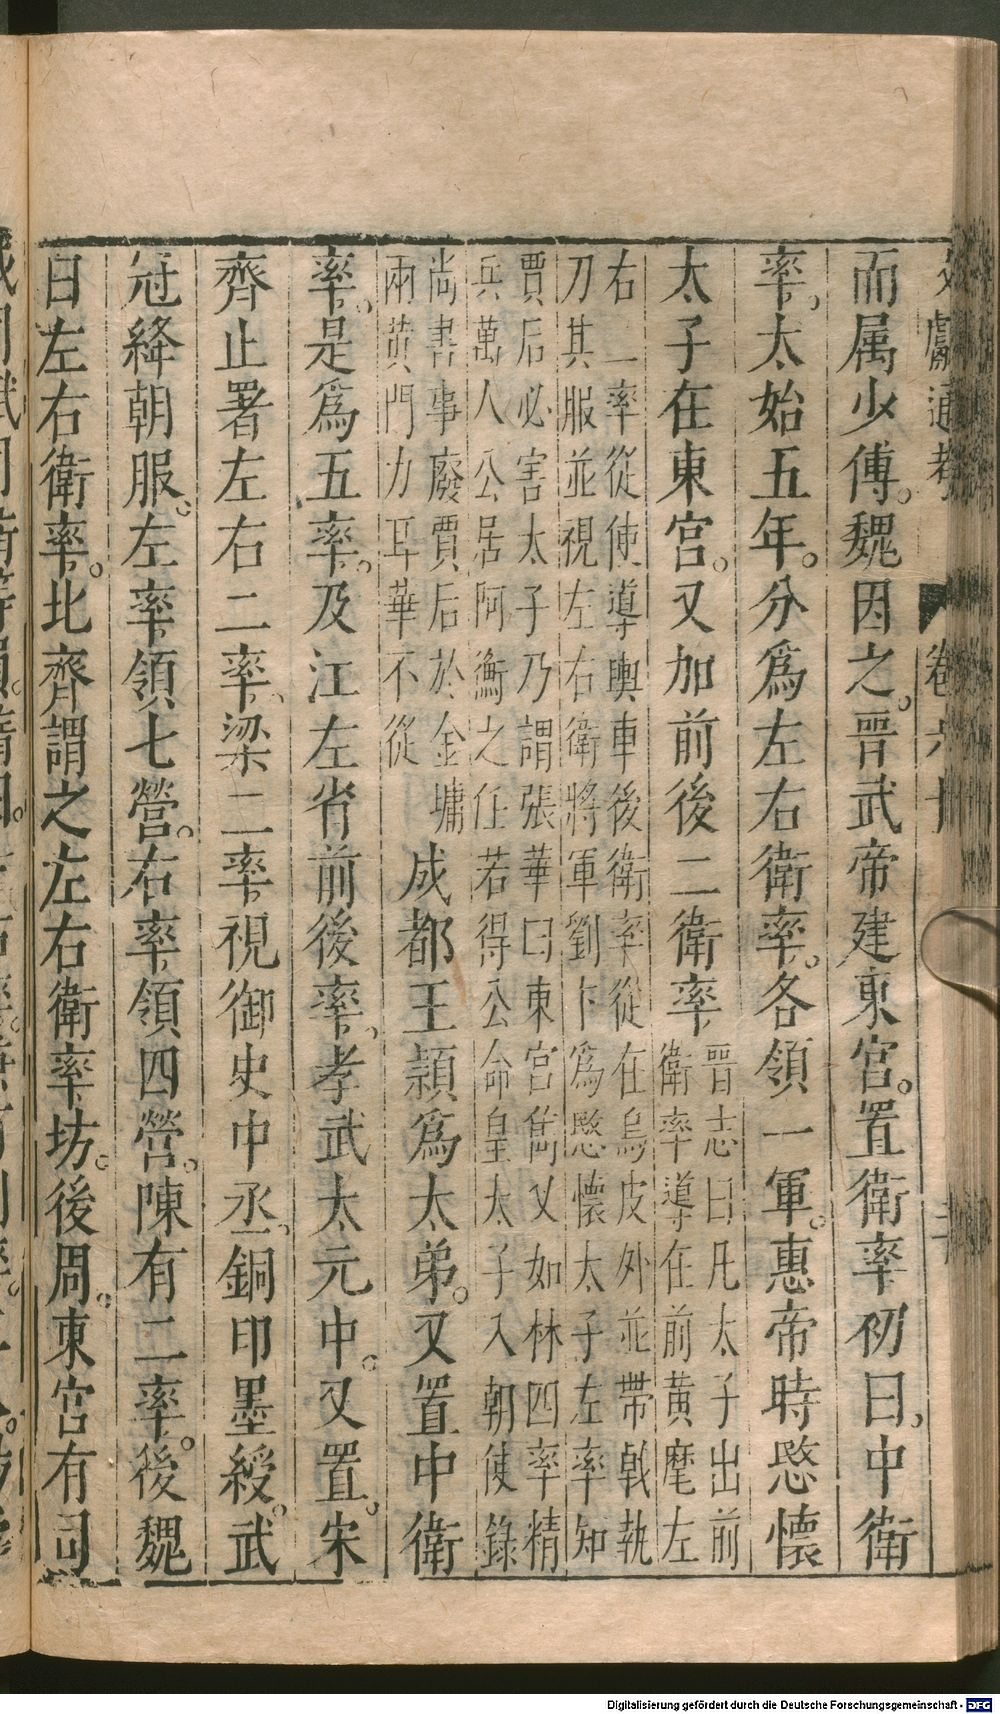 文獻通考　卷六十
而属少傅。魏因之。晋武帝建東宮。置衛率初曰中衛
率。太始五年。分爲左右衛率。各領一軍。惠帝時愍懷
太子在東宮。又加前後二衛率
晋志曰凡太子出前
衛率導在前黃麾左
右二率從使導輿車後衛率從在烏皮外並帶戟執
刀其服並視左右衛將軍劉卞爲愍懷太子左率知
賈后必害太子乃謂張華曰東宮雋乂如林四率精
兵萬人公居阿衡之任若得公命皇太子入朝使錄
尚書事廢賈后於金墉
兩黃門力耳華不從
成都王頴爲太弟。又置中衛
率。是爲五率。及江左省前後率。孝武太元中。又置。宋
齊止署左右二率。梁二率視御史中丞。銅印墨綬。武
冠絳朝服。左率領七營。右率領四營。陳有二率。後魏
曰左右衛率。北齊謂之左右衛率坊。後周。東宮有司
Digitalisierung gefördert durch die Deutsche Forschungsgemeinschaft - DFG